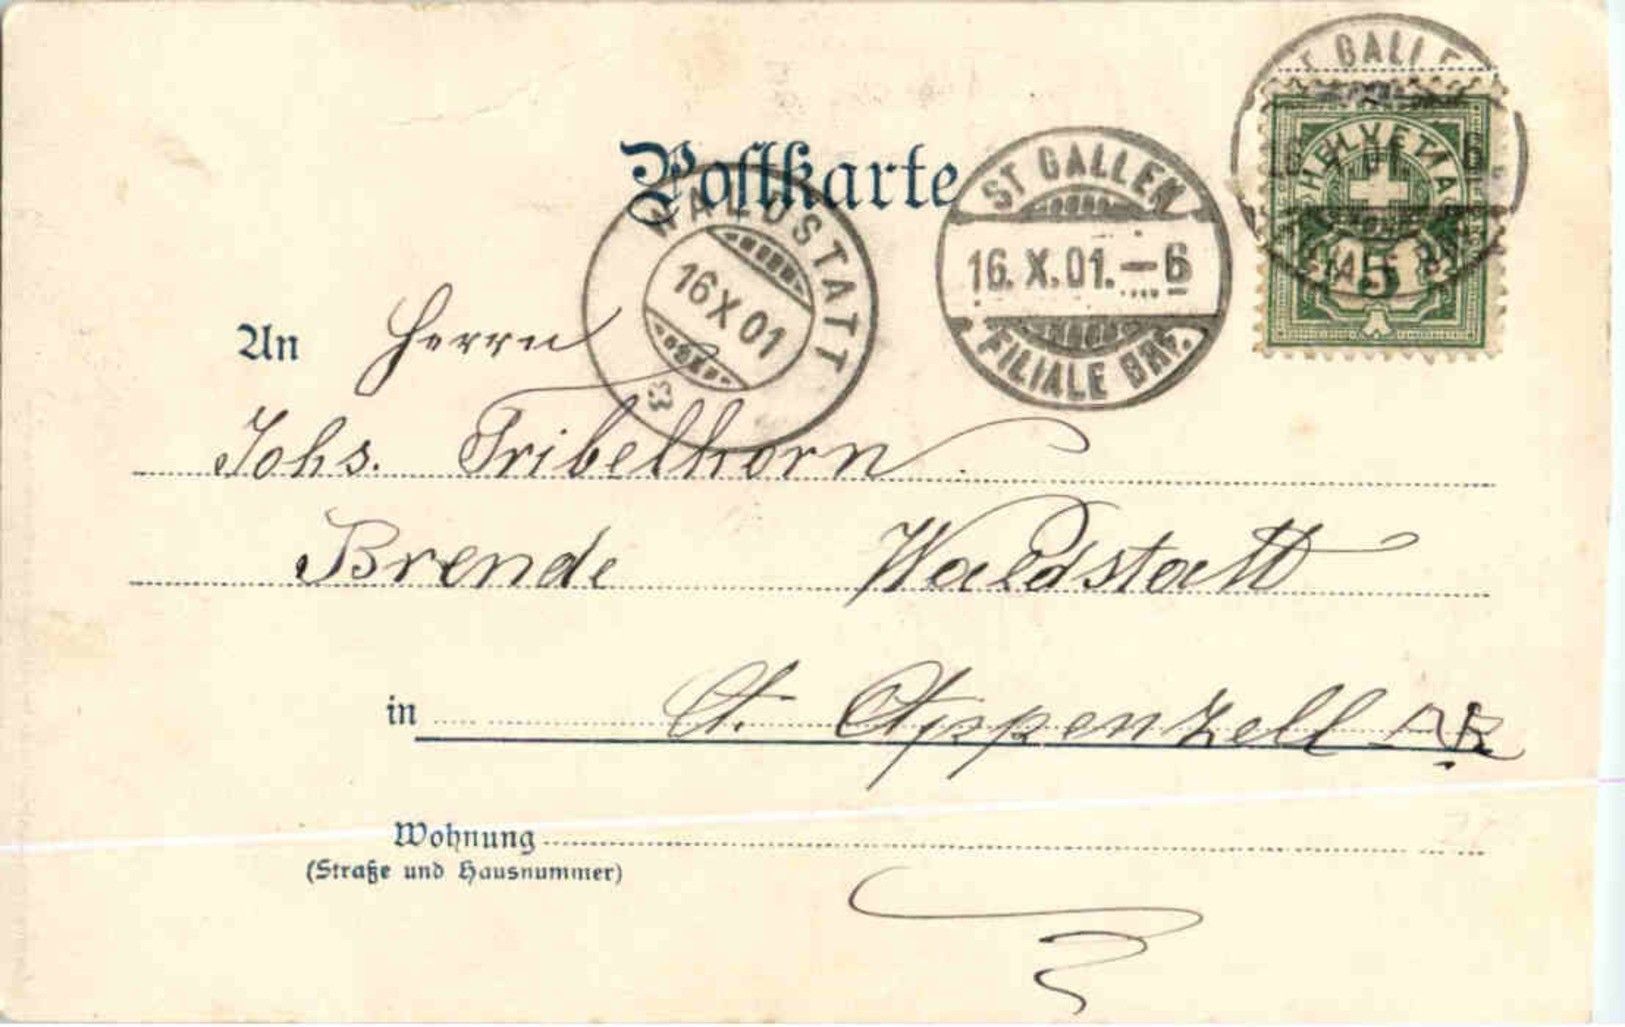 Postkarte
WALDSTATT
16 X 01
ST GALLEN
16. X. 01. — 6
FILIALE BHF.
ST GALLEN
HELVETIA
5
An Herrn
Johs. Tribelhorn
Brende Waldstatt
in Ct. Appenzell AR
Wohnung
(Straße und Hausnummer)